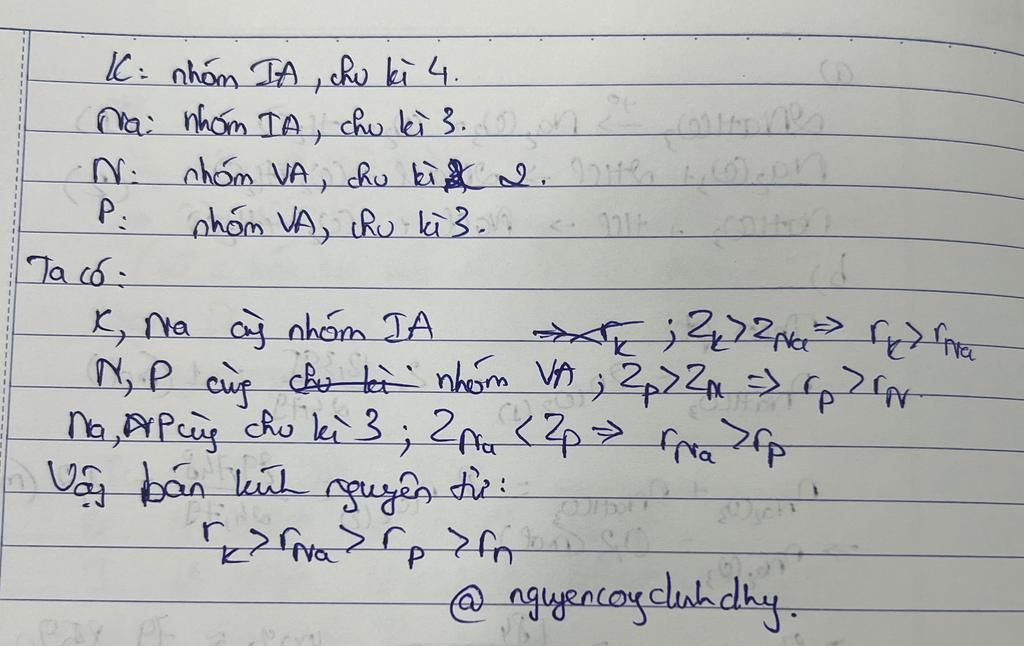 K: nhóm IA, chu kì 4.
Na: nhóm IA, chu kì 3.
N: nhóm VA, chu kì 2.
P: nhóm VA, chu kì 3.
Ta có:
K, Na cùg nhóm IA ; Z_K > Z_Na => r_K > r_Na
N, P cùg nhóm VA ; Z_P > Z_N => r_P > r_N.
Na, P cùg chu kì 3 ; Z_Na < Z_P => r_Na > r_P
Vậy bán kính nguyên tử:
r_K > r_Na > r_P > r_n